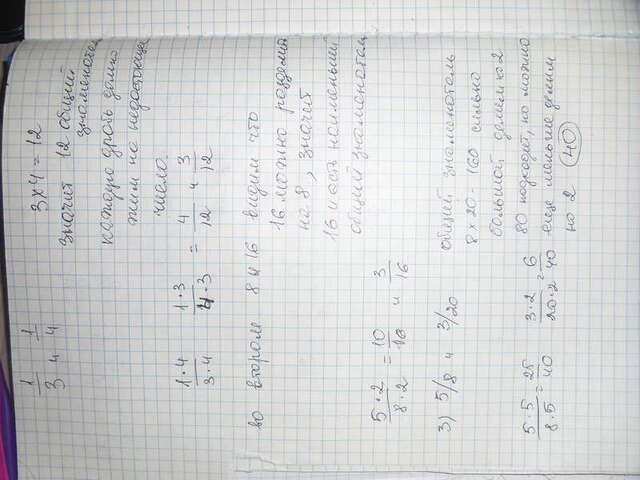 1/3 и 1/4
3x4 = 12
значит 12 общий
знаменатель
каждую дробь домно
жим на недостающее
число.
1·4/3·4 1·3/4·3 = 4/12 и 3/12
во втором 8 и 16 видим что
16 можно разделить
на 8, значит
16 и есть наименьший
общий знаменатель
5·2/8·2 = 10/16 и 3/16
3) 5/8 и 3/20
общий знаменатель
8x20 - 160 сильно
большой делим на 2
80 подходит, но можно
еще меньше делим
на 2 40
5·5/8·5 = 25/40 3·2/20·2 = 6/40